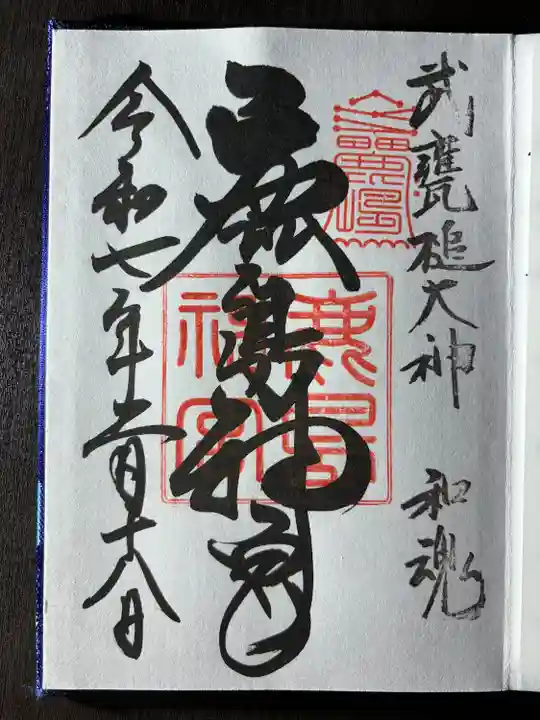 武甕槌大神 和魂
鹿島神宮
鹿島神宮
令和七年二月十八日